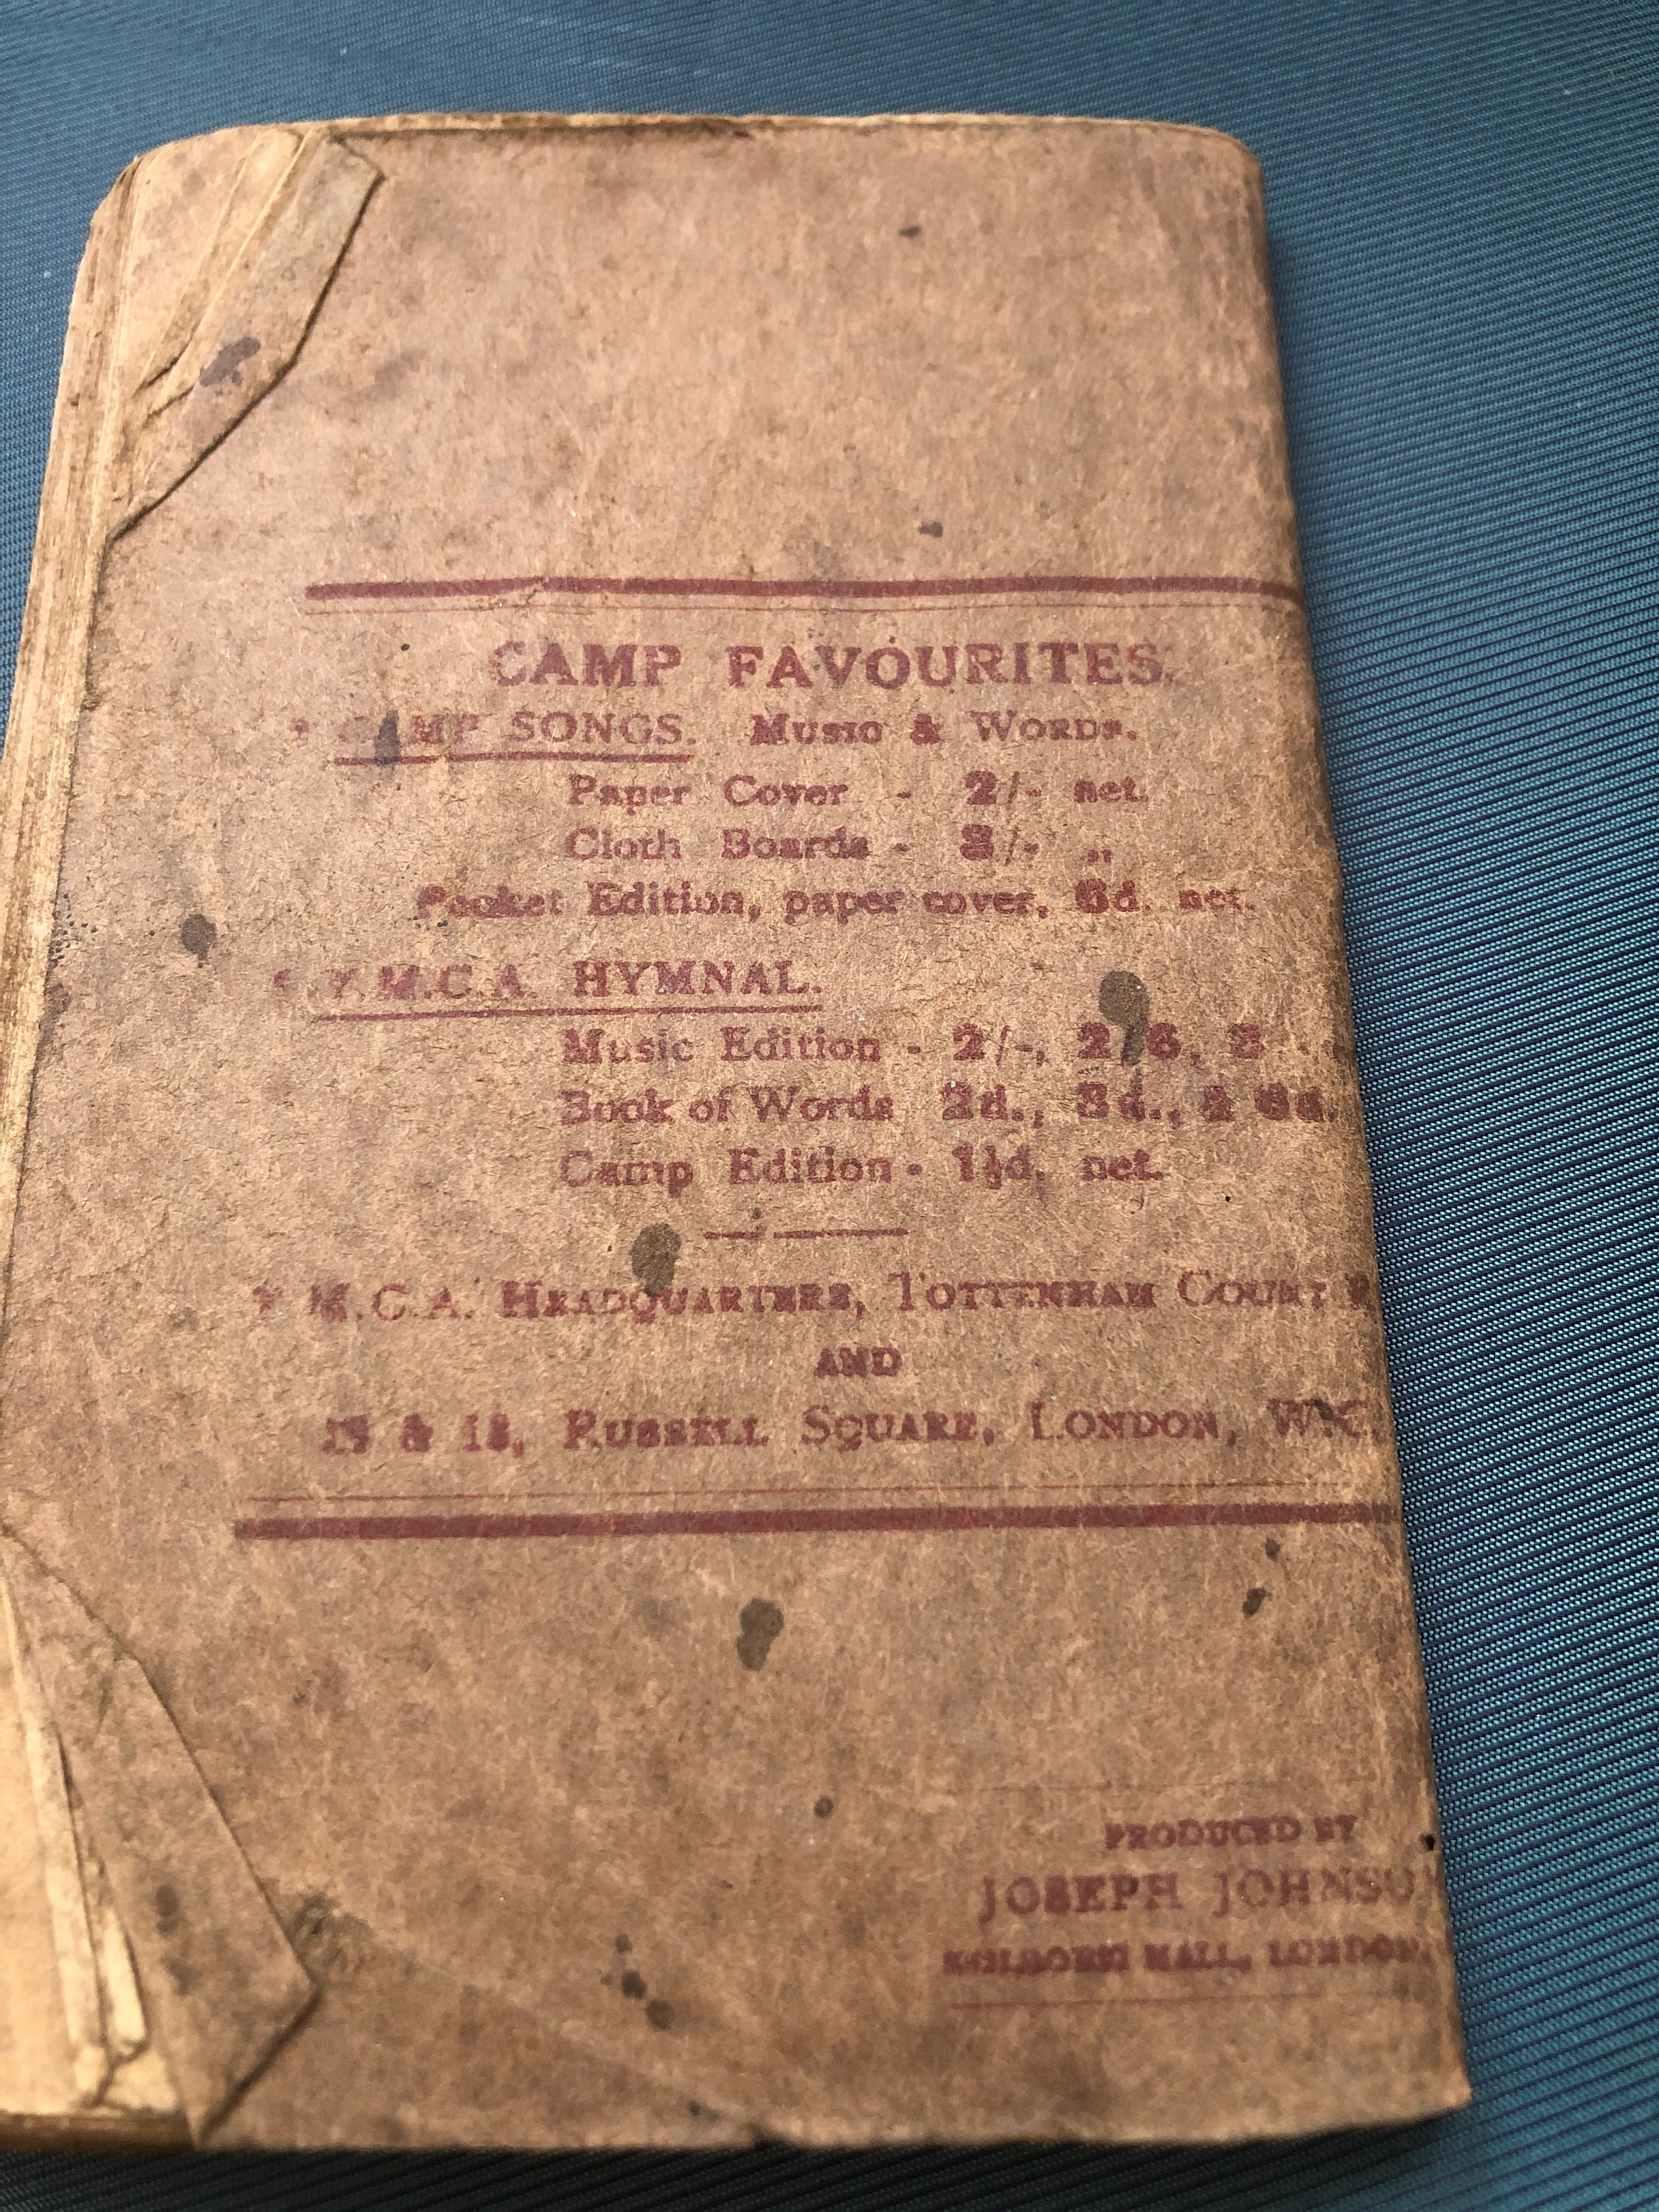 CAMP FAVOURITES.
CAMP SONGS. Music & Words.
Paper Cover - 2/- net.
Cloth Boards - 3/- ,,
Pocket Edition, paper cover, 6d. net.
Y.M.C.A. HYMNAL.
Music Edition - 2/-, 2/6, 3
Book of Words 2d., 3d., & 6d.
Camp Edition - 1½d. net.
Y M.C.A. Headquarters, Tottenham Court R
AND
& Russell Square, London, W.C.
PRODUCED BY
JOSEPH JOHNSO
HOLBORN HALL, LONDON,